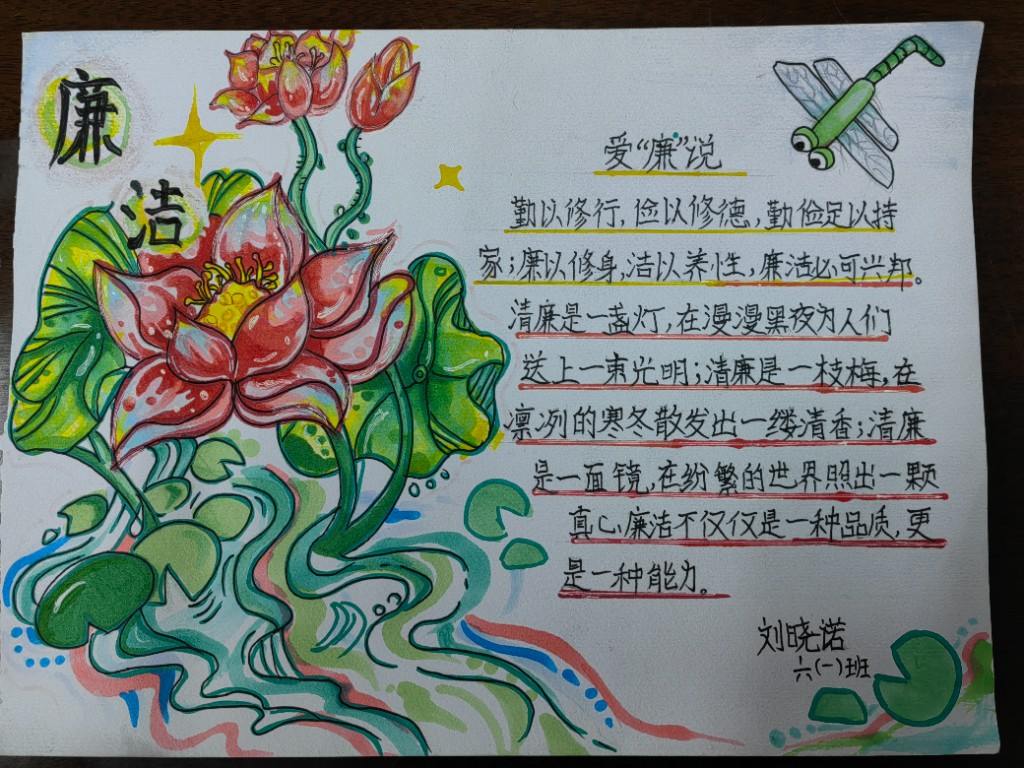 廉
洁
爱“廉”说
勤以修行,俭以修德,勤俭足以持
家;廉以修身,洁以养性,廉洁必可兴邦。
清廉是一盏灯,在漫漫黑夜为人们
送上一束光明;清廉是一枝梅,在
凛冽的寒冬散发出一缕清香;清廉
是一面镜,在纷繁的世界照出一颗
真心,廉洁不仅仅是一种品质,更
是一种能力。
刘晓诺
六(一)班